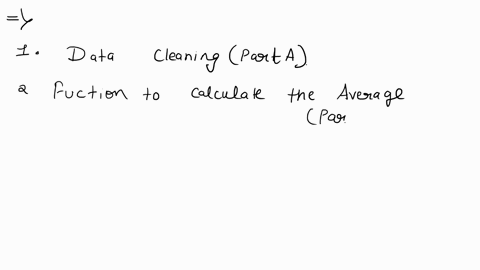 =>
1. Data Cleaning (Part A)
2 Fuction to calculate the Average
(Par